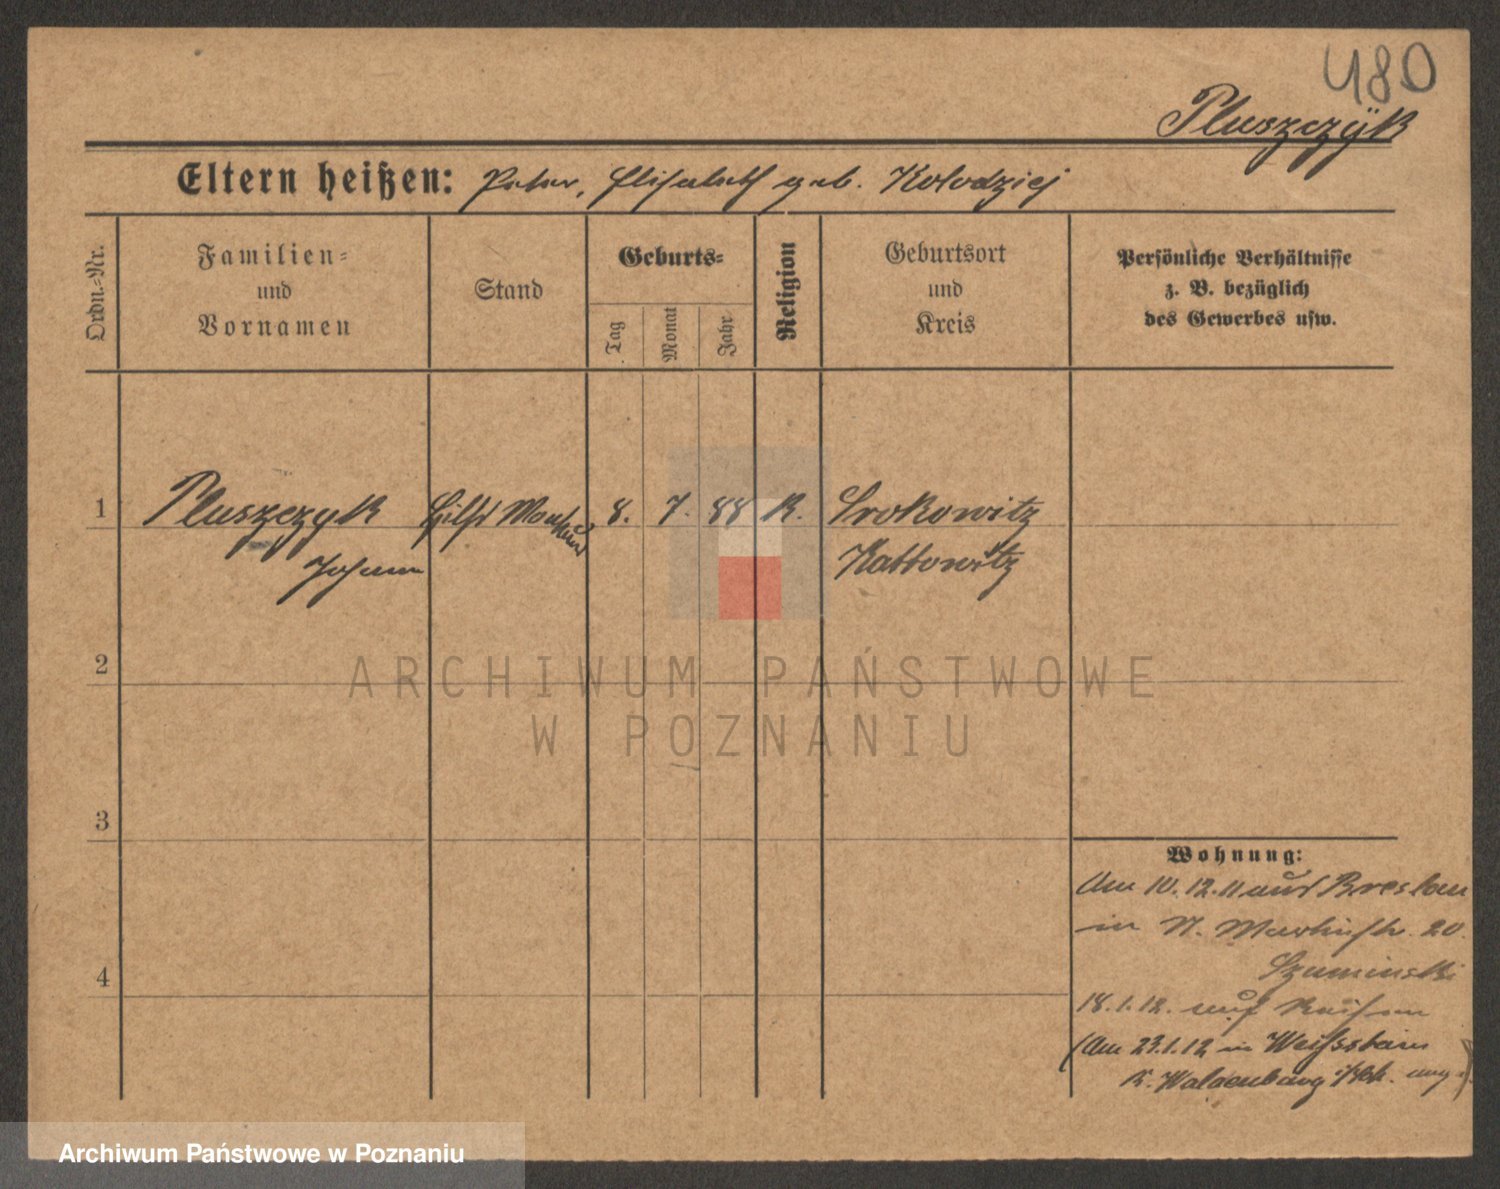 480
Pluszczÿk
Eltern heißen: Peter, Elisabeth geb. Kolodziej
Ordn.-Nr.
Familien- und Vornamen
Stand
Geburts-
Tag
Monat
Jahr
Religion
Geburtsort und Kreis
Persönliche Verhältnisse
z. B. bezüglich
des Gewerbes usw.
1 Pluszczyk 8. 7. 88 K. Srokowitz
Johann Kattowitz
2
ARCHIWUM PAŃSTWOWE
W POZNANIU
3
Wohnung:
Am 10.12.11 aus Breslau
in N. 20.
Szuminski
4
18.1.12. auf Reisen
(Am 23.1.12 in Weissstein
K. Waldenburg
Archiwum Państwowe w Poznaniu